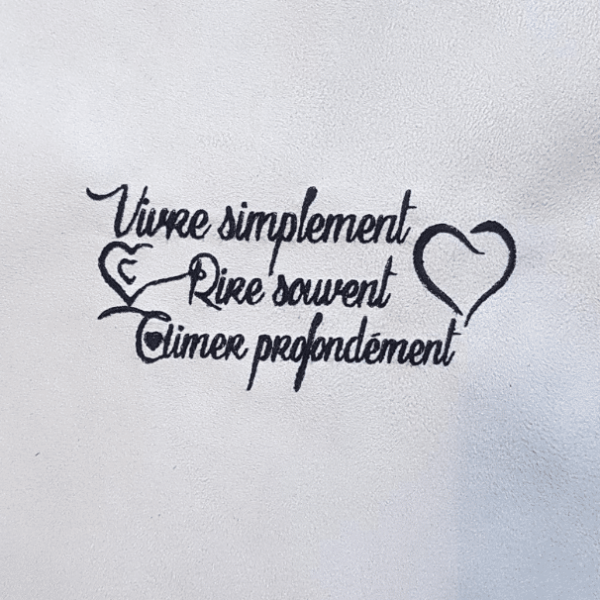 Vivre simplement
Rire souvent
Aimer profondément